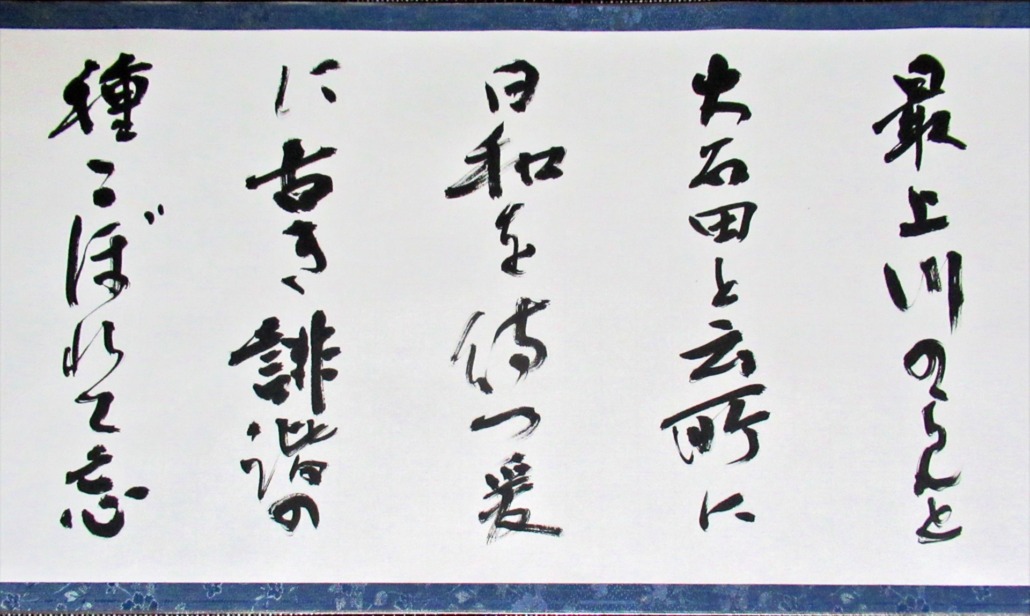 最上川のらんと
大石田と云所に
日和を待つ爰
に古き誹諧の
種こぼれて忘